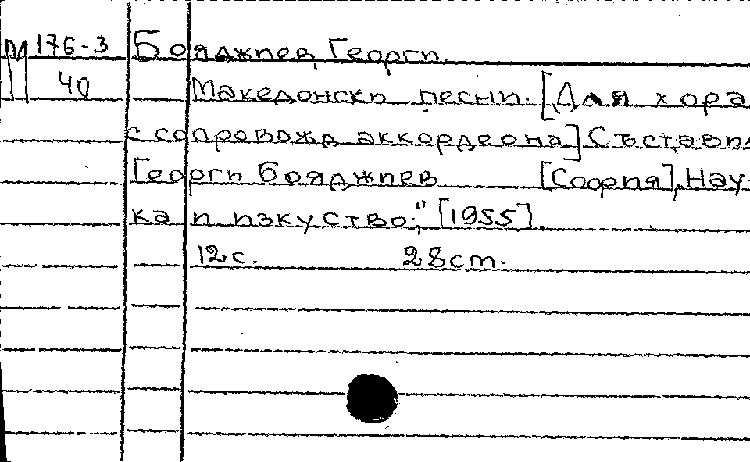 М 176-3 Бояджиев, Георги.
40 Македонски песни. [Для хора
с сопровожд аккордеона] Съставил
Георги Бояджиев [София], Нау-
ка и изкуство," [1955].
12 с. 28 cm.